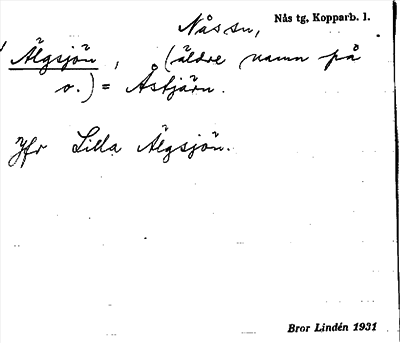 Nås sn, Nås tg, Kopparb. l.
Älgsjön, (äldre namn på
o.) = Åstjärn.
Jfr Lilla Älgsjön.
Bror Lindén 1931